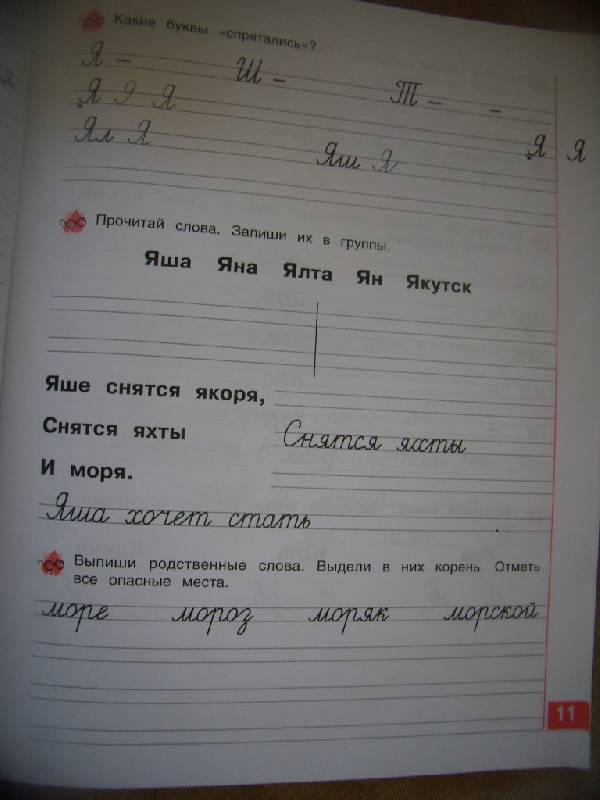 Какие буквы «спрятались»?
Я – Ш – Т – –
Я Я Я
Ял Я Яш Я Я Я
Прочитай слова. Запиши их в группы.
Яша Яна Ялта Ян Якутск
Яше снятся якоря,
Снятся яхты Снятся яхты
И моря.
Яша хочет стать .
Выпиши родственные слова. Выдели в них корень. Отметь
все опасные места.
море мороз моряк морской
11